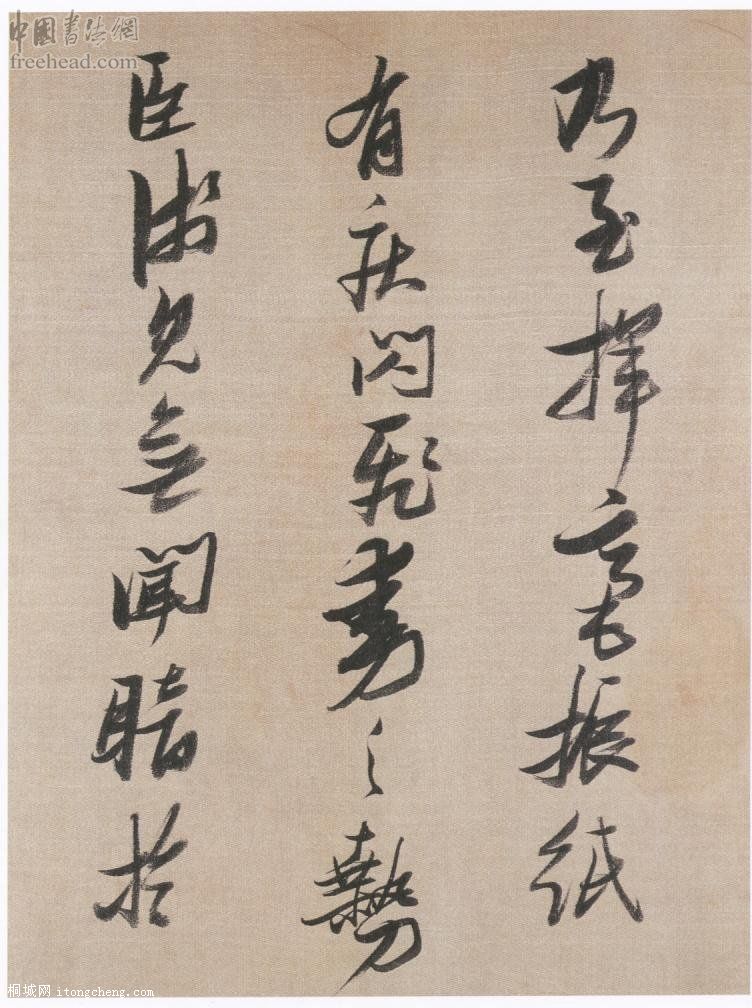 中國書法網
freehead.com
乃至揮毫振紙
有疾閃飛動之勢
臣淺見無聞暗於
桐城网 itongcheng.com